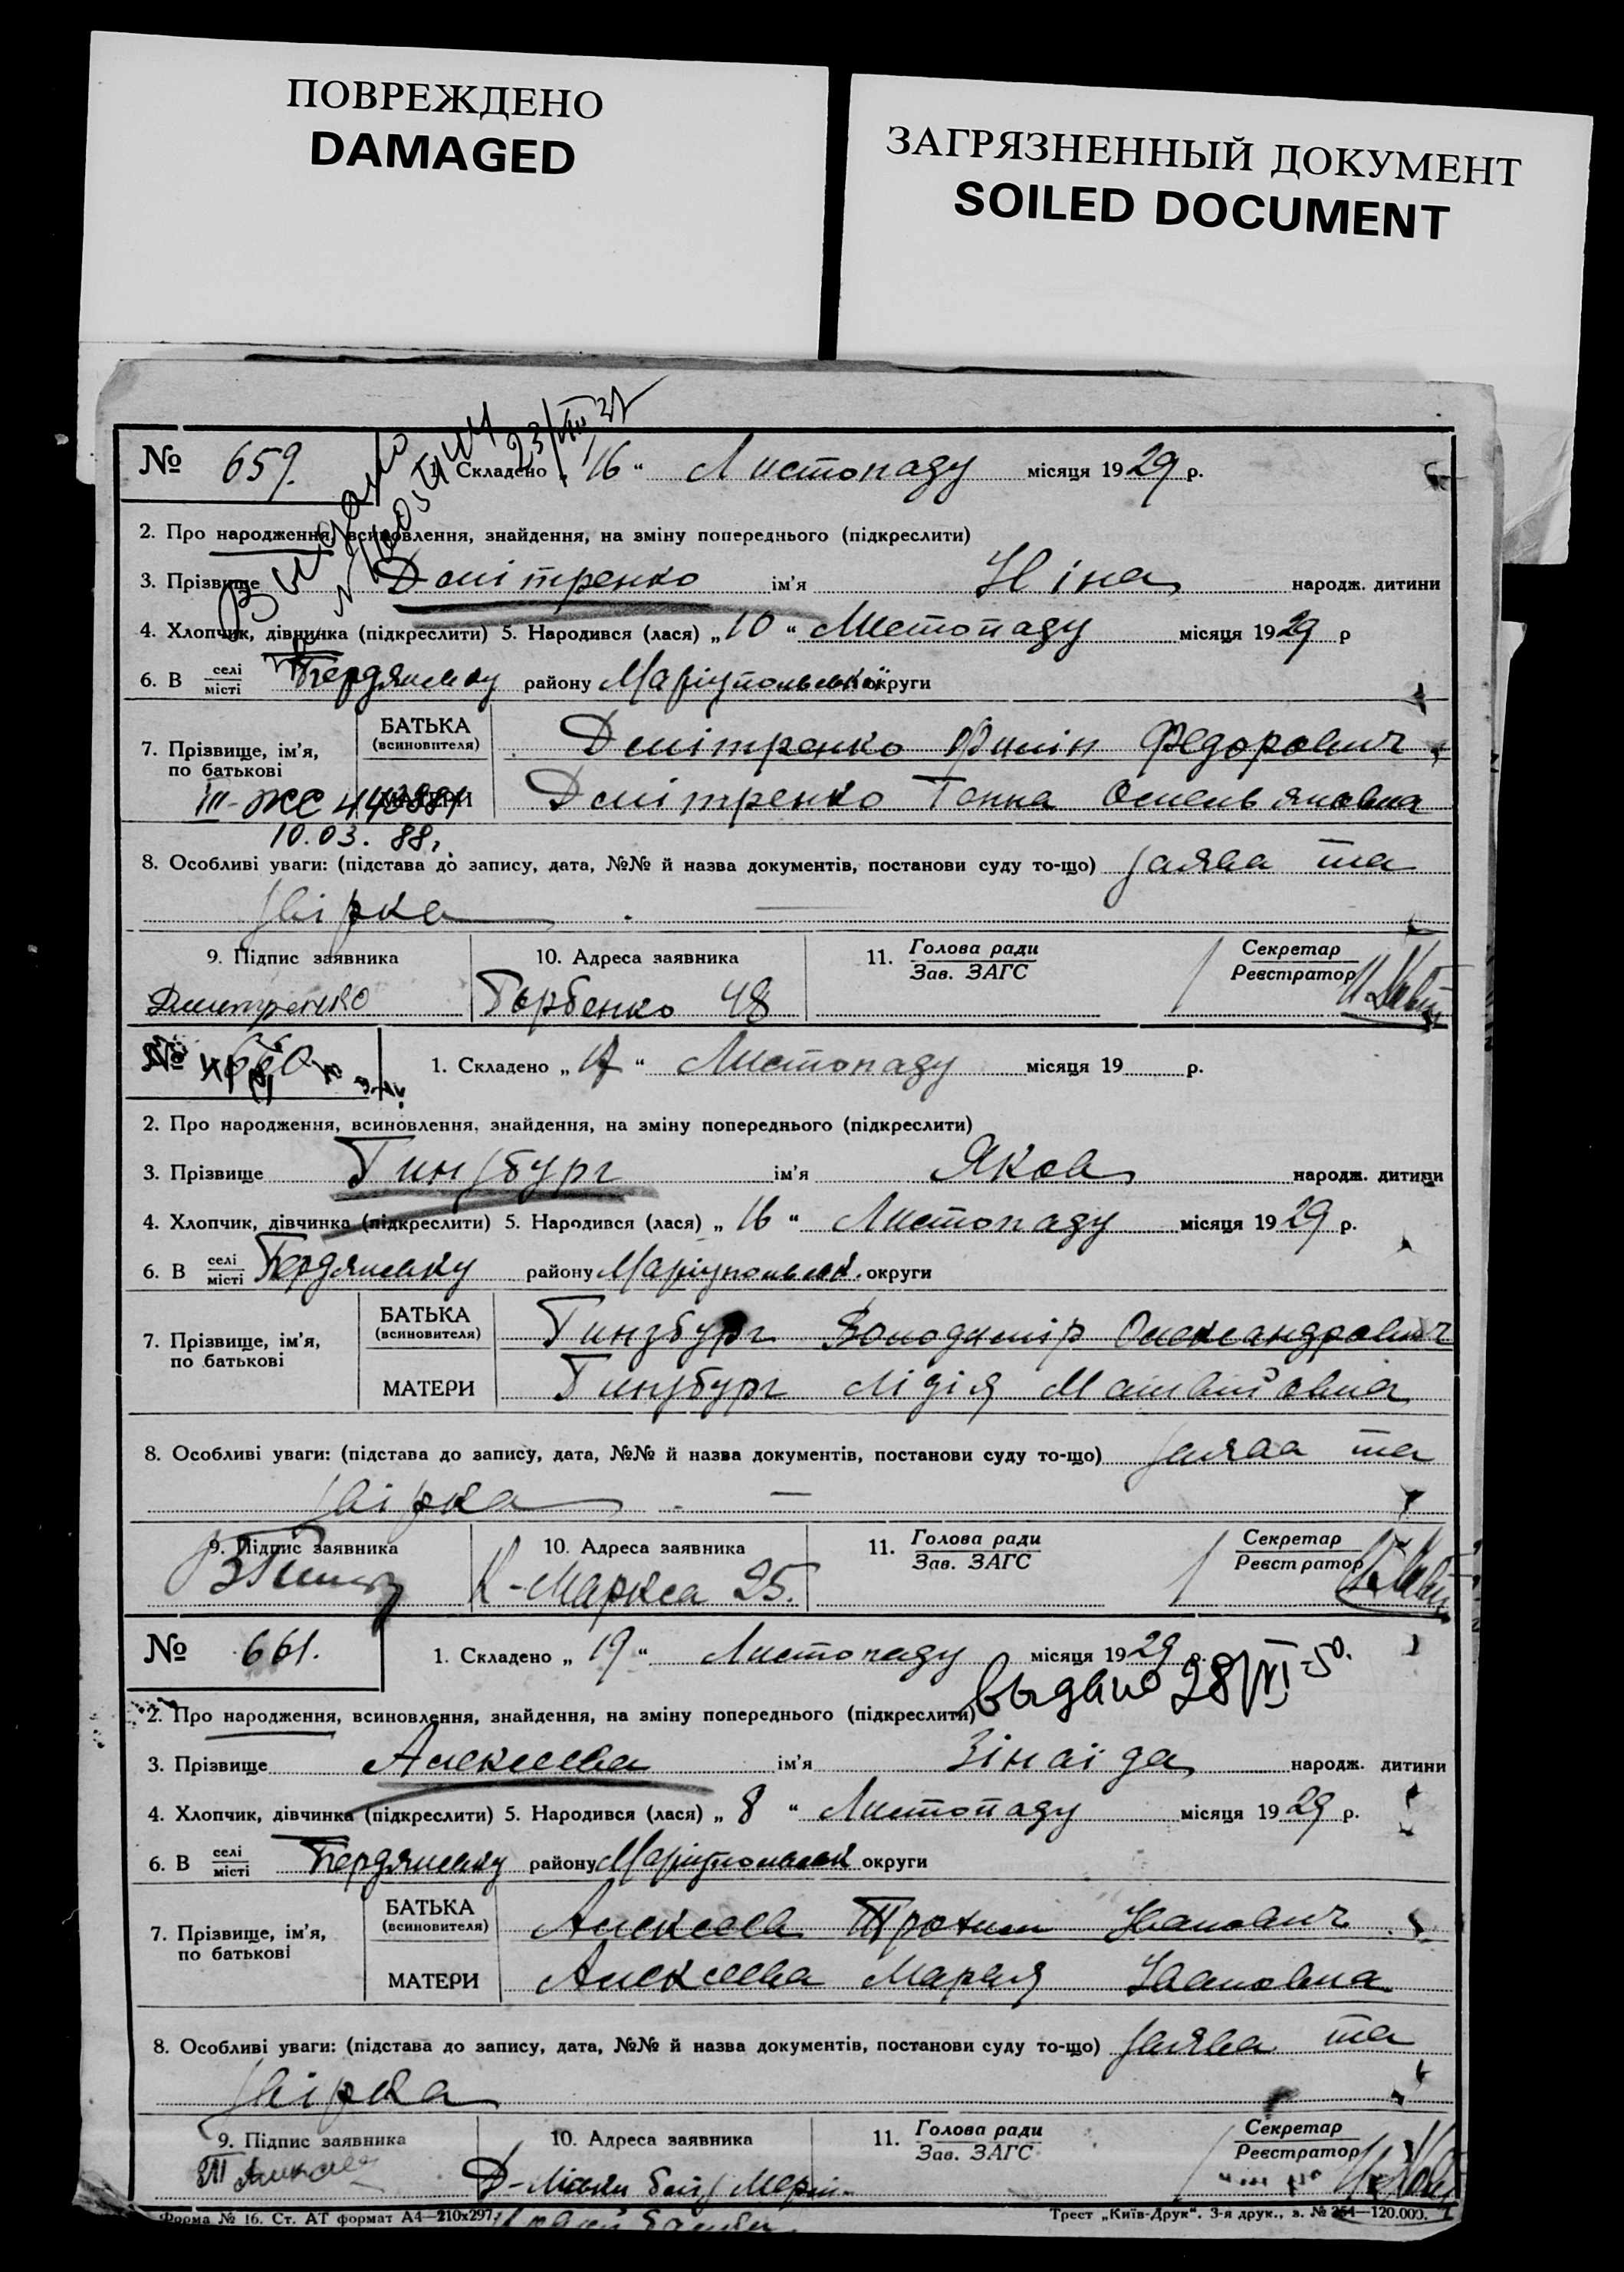 ПОВРЕЖДЕНО
DAMAGED
ЗАГРЯЗНЕННЫЙ ДОКУМЕНТ
SOILED DOCUMENT
№ 659. 1. Складено „ 16 “ Листопаду місяця 1929 р.
Видано 23/VIII 37
2. Про народження, всиновлення, знайдення, на зміну попереднього (підкреслити)
3. Прізвище Дмітренко ім'я Ніна народж. дитини
4. Хлопчик, дівчинка (підкреслити) 5. Народився (лася) „ 10 “ Листопаду місяця 1929 р
6. В селі місті Бердянську району Маріупольської округи
7. Прізвище, ім'я, по батькові
БАТЬКА (всиновителя) Дмітренко Филіп Федорович
III-ЖС МАТЕРИ Дмітренко Ганна Омельяновна
10.03.88г.
8. Особливі уваги: (підстава до запису, дата, №№ й назва документів, постанови суду то-що) заява та
звірка
9. Підпис заявника 10. Адреса заявника 11. Голова ради Зав. ЗАГС Секретар Реєстратор
Дмитренко Горбенко 48
№ 660 1. Складено „ 17 “ Листопаду місяця 19 р.
2. Про народження, всиновлення, знайдення, на зміну попереднього (підкреслити)
3. Прізвище Гинзбург ім'я Яков народж. дитини
4. Хлопчик, дівчинка (підкреслити) 5. Народився (лася) „ 16 “ Листопаду місяця 1929 р.
6. В селі місті Бердянську району Маріупольськ. округи
7. Прізвище, ім'я, по батькові
БАТЬКА (всиновителя) Гинзбург Володимір Олександрович
МАТЕРИ Гинзбург Лідія
8. Особливі уваги: (підстава до запису, дата, №№ й назва документів, постанови суду то-що) заява та
звірка
9. Підпис заявника 10. Адреса заявника 11. Голова ради Зав. ЗАГС Секретар Реєстратор
К-Маркса 25.
№ 661. 1. Складено „ 19 “ Листопаду місяця 1929
выдано 28/VI-50.
2. Про народження, всиновлення, знайдення, на зміну попереднього (підкреслити)
3. Прізвище Алексеева ім'я Зінаїда народж. дитини
4. Хлопчик, дівчинка (підкреслити) 5. Народився (лася) „ 8 “ Листопаду місяця 1929 р.
6. В селі місті Бердянську району Маріупольськ округи
7. Прізвище, ім'я, по батькові
БАТЬКА (всиновителя) Алексеев Трохим Іванович
МАТЕРИ Алексеева Мария Івановна
8. Особливі уваги: (підстава до запису, дата, №№ й назва документів, постанови суду то-що) заява та
звірка
9. Підпис заявника 10. Адреса заявника 11. Голова ради Зав. ЗАГС Секретар Реєстратор
Форма № 16. Ст. АТ формат А4—210х297. Трест „Київ-Друк“. 3-я друк., з. № 254—120.000.